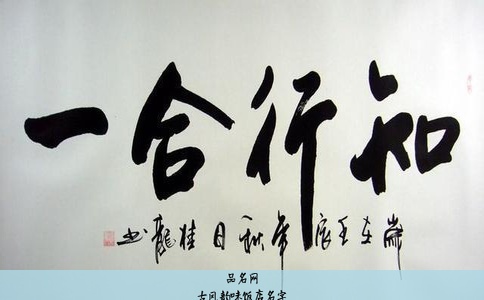 知行合一
歲在壬辰年秋日桂龍书
品名网
古风韵味饭店名字